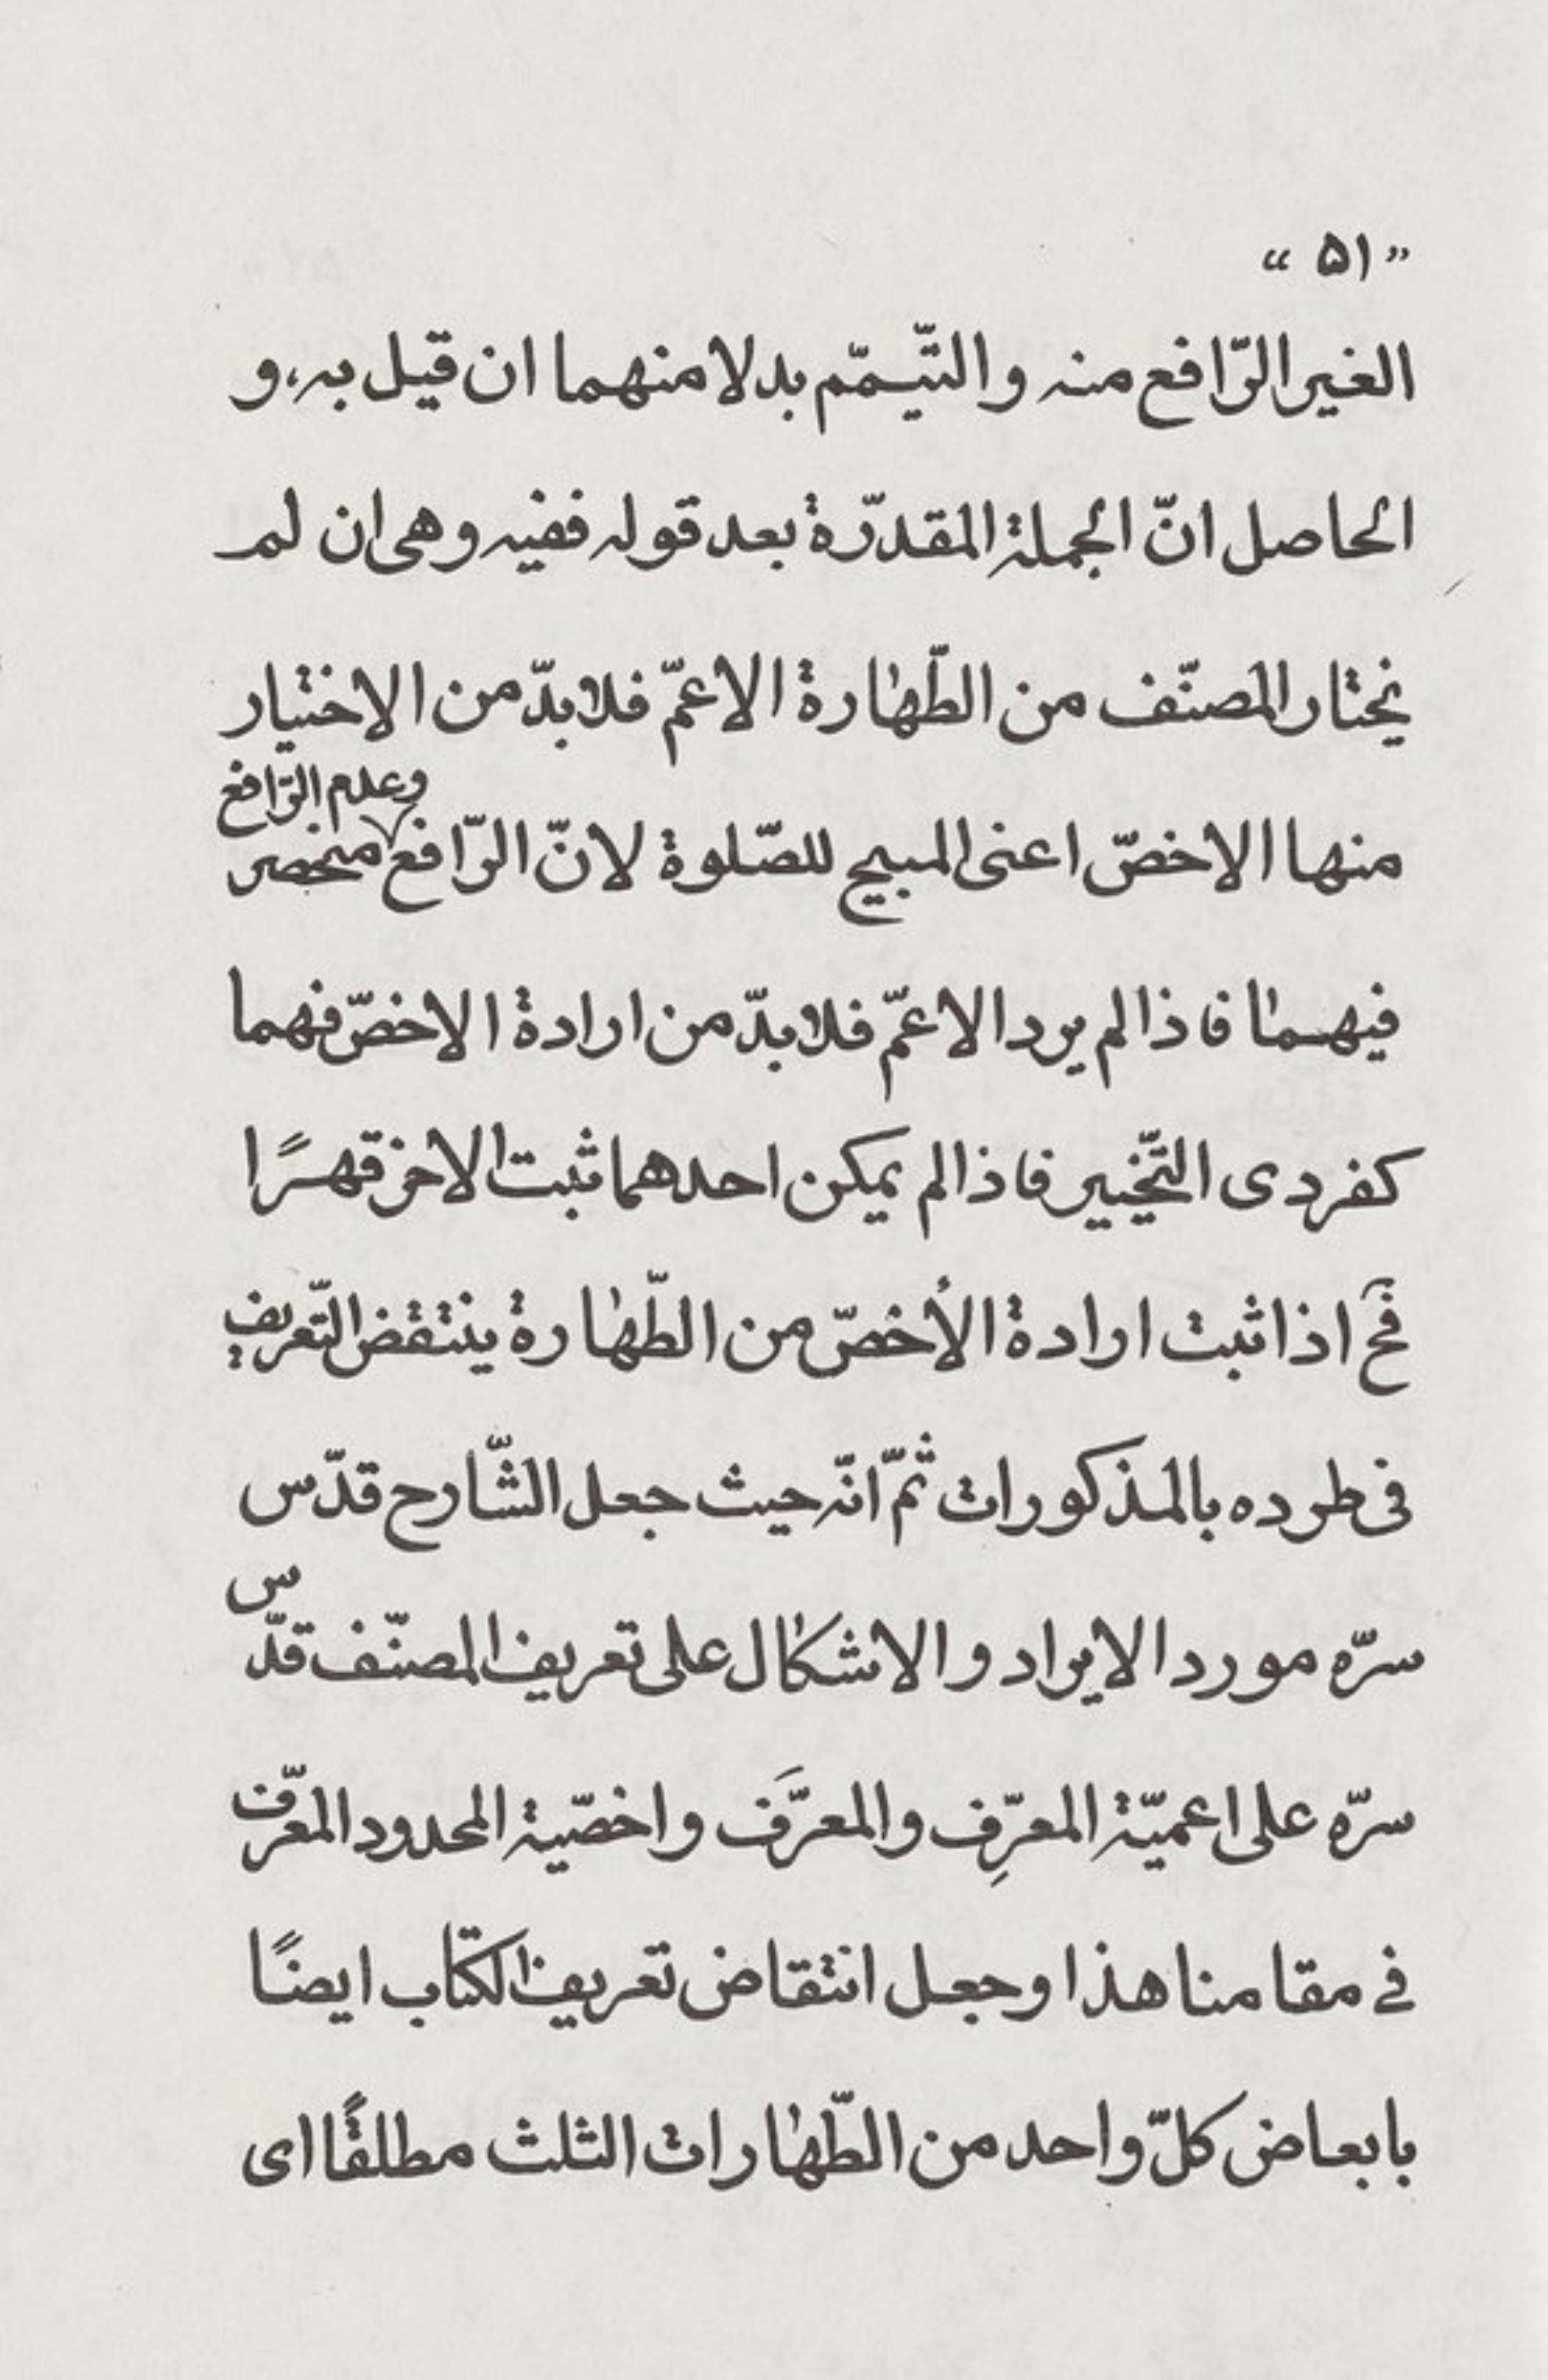 « ۵۱ »
الغیر الرّافع منه و التّیمّم بدلا منهما ان قیل به، و
الحاصل انّ الجملة المقدّرة بعد قوله ففیه و هی ان لم
یختار المصنّف من الطّهارة الاعمّ فلا بدّ من الاختیار
منها الاخصّ اعنی المبیح للصّلوة لانّ الرّافع وعدم الرّافع منحصر
فیهما فاذا لم یرد الاعمّ فلا بدّ من ارادة الاخصّ فهما
کفردی التّخییر فاذا لم یمکن احدهما ثبت الاخر قهرًا
فحَ اذا ثبت ارادة الأخصّ من الطّهارة ینتقض التّعریف
فی طرده بالمذکورات ثمّ انّه حیث جعل الشّارح قدّس
سرّه مورد الایراد و الاشکال علی تعریف المصنّف قدّس
سرّه علی اعمیّة المعرّفِ و المعرَّف و اخصّیة المحدود المعرّف
فی مقامنا هذا و جعل انتقاض تعریف الکتاب ایضًا
بابعاض کلّ واحد من الطّهارات الثلث مطلقًا ای